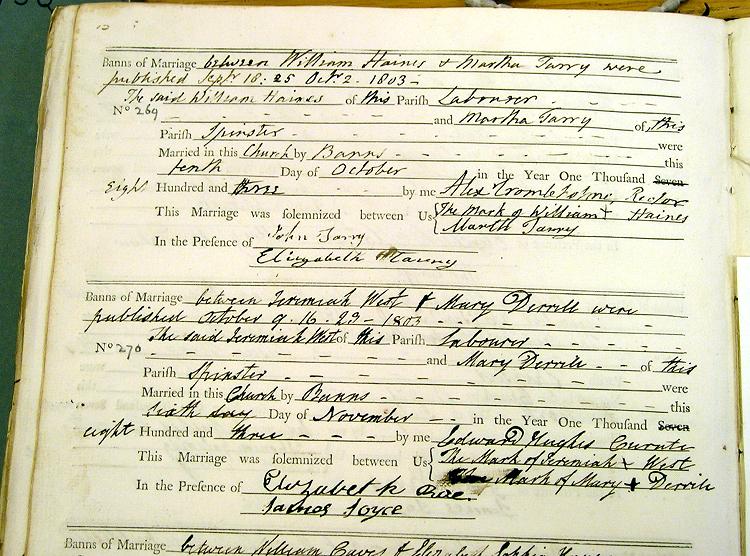 Banns of Marriage between William Haines & Martha Tarry were
published Sept. 18. 25 Oct. 2. 1803 -
The said William Haines of this Parish Labourer
No 269 and Martha Tarry of, this
Parish Spinster were
Married in this Church by Banns this
tenth Day of October in the Year One Thousand Seven
Eight Hundred and three by me Alex Crombleholme Rector
This Marriage was solemnized between Us The Mark of William + Haines
Marth Tarry
In the Presence of John Tarry
Elizabeth
Banns of Marriage between Jeremiah West & Mary Derrill were
published October 9. 16. 23 - 1803
The said Jeremiah West of this Parish Labourer
No 270 and Mary Derrill of this
Parish Spinster were
Married in this Church by Banns this
sixth day Day of November in the Year One Thousand Seven
eight Hundred and three by me Edward Hughes Curate
This Marriage was solemnized between Us The Mark of Jeremiah + West
The Mark of Mary + Derrill
In the Presence of Elizabeth
James Joyce
Banns of Marriage between William &